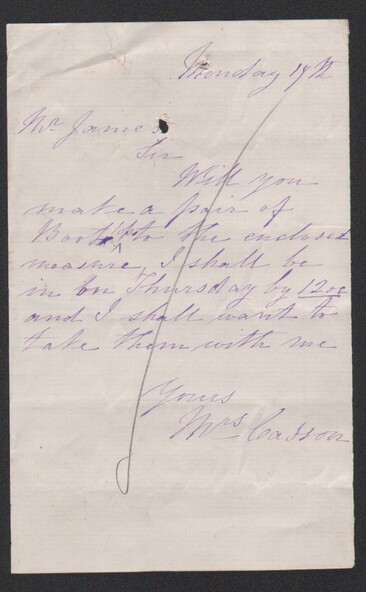 Monday 19th
Mr James
Sir
Will you
make a pair of
Boots to the enclosed
measure, I shall be
in on Thursday by 12 oc
and I shall want to
take them with me
Yours
Mrs Casson